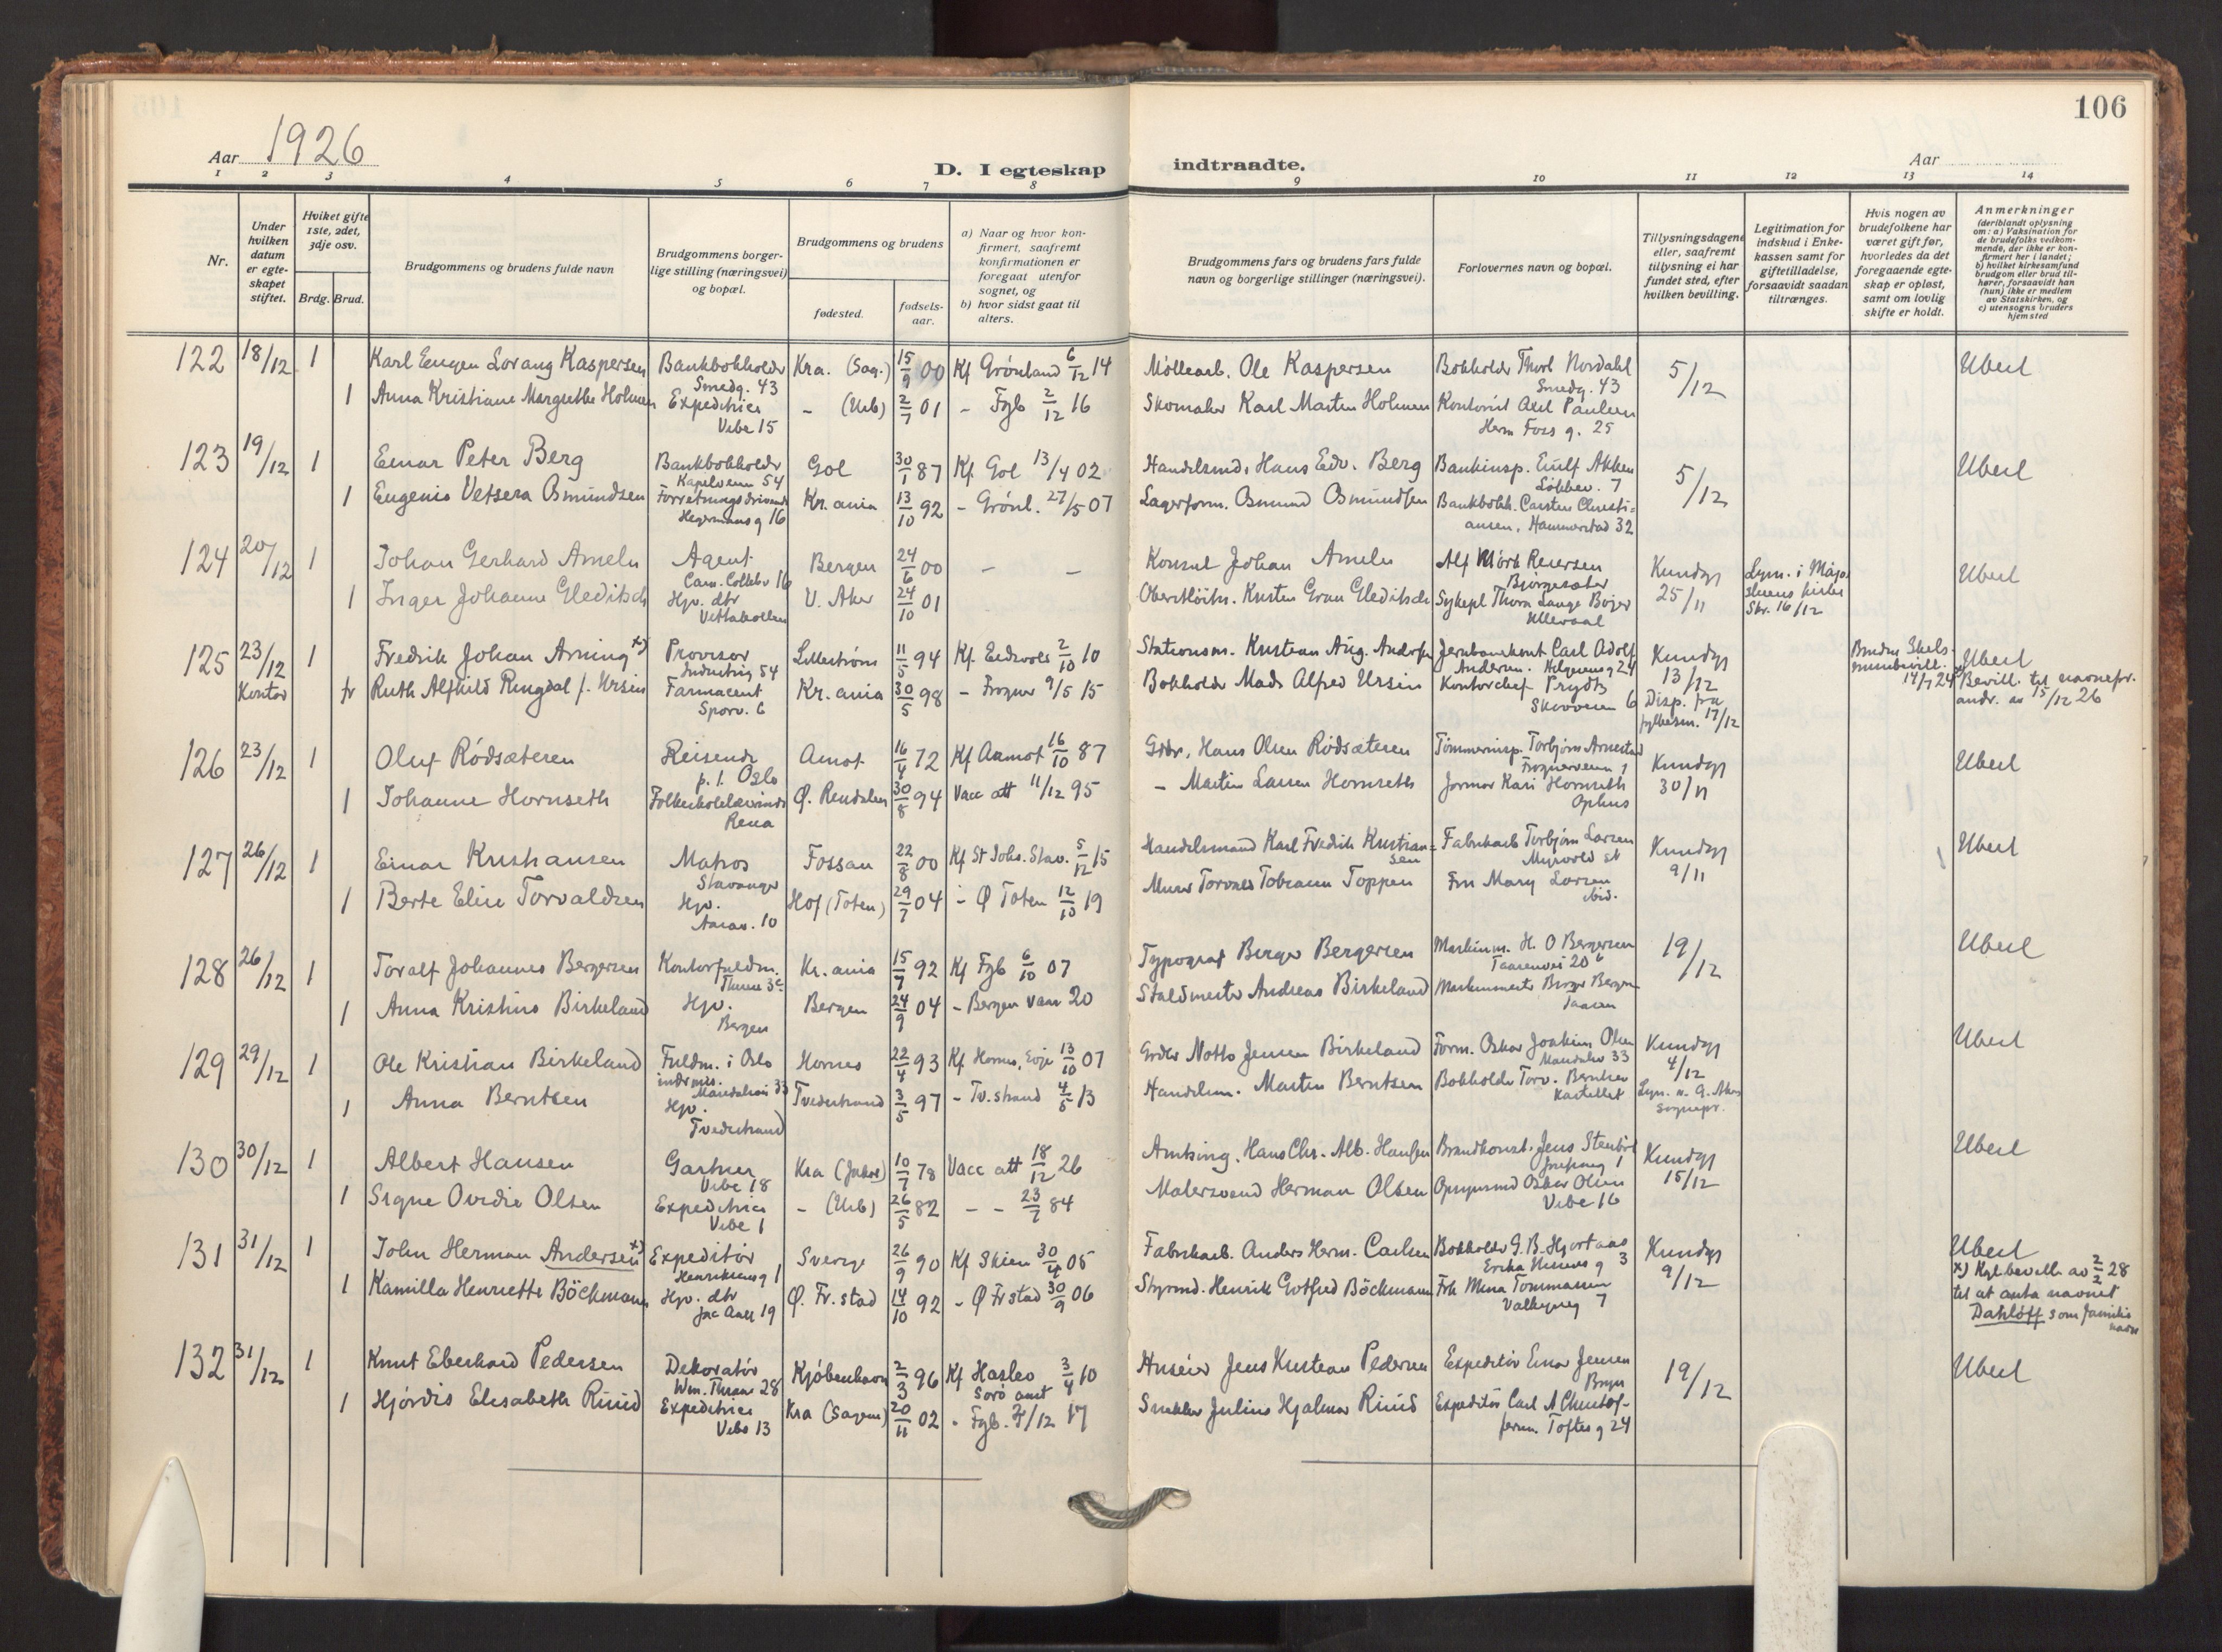 106
Aar 1926
D. I egteskap indtraadte.
Aar
1 2 3 4 5 6 7 8 9 10 11 12 13 14
Nr.
Under hvilken datum er egteskapet stiftet.
Hviket gifte 1ste, 2det, 3dje osv.
Brdg. Brud.
Brudgommens og brudens fulde navn
Brudgommens borgerlige stilling (næringsvei) og bopæl.
Brudgommens og brudens
fødested.
fødselsaar.
a) Naar og hvor konfirmert, saafremt konfirmationen er foregaat utenfor sognet, og
b) hvor sidst gaat til alters.
Brudgommens fars og brudens fars fulde navn og borgerlige stillinger (næringsvei).
Forlovernes navn og bopæl.
Tillysningsdagene eller, saafremt tillysning ei har fundet sted, efter hvilken bevilling.
Legitimation for indskud i Enkekassen samt for giftetilladelse, forsaavidt saadan tiltrænges.
Hvis nogen av brudefolkene har været gift før, hvorledes da det foregaaende egteskap er opløst, samt om lovlig skifte er holdt.
Anmerkninger
(deriblandt oplysning om: a) Vaksination for de brudefolks vedkommende, der ikke er konfirmert her i landet; b) hvilket kirkesamfund brudgom eller brud tilhører, forsaavidt han (hun) ikke er medlem av Statskirken, og c) utensogns bruders hjemsted
122 18/12 1 Karl Eugen Lorang Kaspersen Bankbokholder Smedg. 43 Kra. (Sag.) 15/9 00 Kf Grønland 6/12 14 Møllearb. Ole Kaspersen Bokholder Thorl Nordahl Smedg. 43 5/12 Uberl
1 Anna Kristiane Margrethe Holmen Expeditrice Vibe 15 - (Urb) 2/7 01 - Fgb 2/12 16 Skomaker Karl Martin Holmen Kontorist Axel Paulsen Herm Foss g. 25
123 19/12 1 Einar Peter Berg Bankbokholder Kapelveien 54 Gol 30/1 87 Kf. Gol 13/4 02 Handelsmd. Hans Edv. Berg Bankinsp. Eiulf Akken Løkkev. 7 5/12 Uberl
1 Eugenie Vetsera Osmundsen Forretningsdrivende Hegermans g 16 Kr.ania 13/10 92 - Grønl. 27/5 07 Lagerform. Osmund Osmundsen Bankbokh. Carsten Christiansen, Hammerstad 32
124 20/12 1 Johan Gerhard Ameln Agent Cam. Collettsv 16 Bergen 24/6 00 - - Konsul Johan Ameln Alf Mørk Reiersen Bjørgesæter Kundgj 25/11 Lysn. i Majorstuens kirke Skr. 16/12 Uberl
1 Inger Johanne Gleditsch Hjv. dtr Vettakollen V. Aker 24/10 01 Oberstløitn. Kristen Gran Gleditsch Sykepl Thora Lange Bojer Ullevaal
125 23/12 Kontor 1 Fredrik Johan Arning x) Provisor Industrig 54 Lillestrøm 11/5 94 Kf. Eidsvold 2/10 10 Stationsm. Kristian Aug. Andersen Jernbanekont Carl Adolf Andersen. Helgesens g 24 Kundgj 13/12 Uberl
fr Ruth Alfhild Ringdal f. Ursin Farmaceut Sporv. 6 Kr.ania 30/5 98 - Frogner 9/5 15 Bokholder Mads Alfred Ursin Kontorchef Prydtz Skovveien 6 Disp. fra fylkesm. 17/12 14/7 24 Bevill. til navnefor. 15/12 26
126 23/12 1 Oluf Rødsæteren Reisende p. t. Oslo Amot 16/4 72 Kf Aamot 16/10 87 Grbr. Hans Olsen Rødsæteren Tømmerinsp. Torbjørn Arnestad Frognerveien 1 Kundgj 30/11 Uberl
1 Johanne Hornseth Folkeskolelærerinde Rena Ø. Rendalen 30/8 94 Vacc att 11/12 95 - Martin Larsen Hornseth Jormor Kari Hornseth Ophus
127 26/12 1 Einar Kristiansen Matros Stavanger Fossan 22/8 00 Kf St Johs. Stav. 5/12 15 Handelsmand Karl Fredrik Kristiansen Fabrikarb Torbjørn Larsen Myrvold st Kundgj 9/11 Uberl
1 Berte Eline Torvaldsen Hjv. Hof (Toten) 29/7 04 - Ø Toten 12/10 19 Murer Torvald Tobiassen Toppen Fru Mary Larsen ibid.
128 26/12 1 Toralf Johannes Bergersen Kontorfuldm. Kr.ania 15/7 92 Kf Fgb 6/10 07 Typograf Berger Bergersen Maskinm. H. O Bergersen Taasenvei 20 b 19/12 Uberl
1 Anna Kristine Birkeland Hjv. Bergen Bergen 24/9 04 - Bergen 20 Staldmester Andreas Birkeland Maskinmester Birger Bergersen Taasen
129 29/12 1 Ole Kristian Birkeland Fuldm. i Oslo indremis. Maridalsvei 33 Hornes 22/4 93 Kf Hornes, Evje 13/10 07 Grdbr Notto Jensen Birkeland Form. Oskar Joakim Olsen Maridalsv 33 Kundgj 4/12 Uberl
1 Anna Berntsen Hjv. Tvedestrand Tvedestrand 3/5 97 - Tv.strand 4/5 13 Handelsm. Martin Berntsen Bokholder Torv. Berntsen Kastellet Lysn. v. G. Akers sognepr.
130 30/12 1 Albert Hansen Gartner Vibe 18 Kra (Jakob) 10/7 78 Vacc att 18/12 26 Amtsing. Hans Chr. Alb. Hansen Brandkonst. Jens Stenbøl Kundgj 15/12 Uberl
1 Signe Ovidie Olsen Expeditrice Vibe 1 - (Urb) 26/5 82 - - 23/7 84 Malersvend Herman Olsen Opsynsmd Oskar Olsen Vibe 16
131 31/12 1 John Herman Andersen x) Expeditør Henriksens g 1 Sverge 26/9 90 Kf Skien 30/4 05 Fabrikarb. Anders Herm. Carlsen Bokholder G. B. Hjortaas 3 Kundgj 9/12 Uberl
1 Kamilla Henriette Böckmann Hjv. dtr Jac Aall 19 Ø. Fr.stad 14/10 92 - Ø Fr stad 30/9 06 Styrmd. Henrik Gotfred Böckmann Frk Mina Tommassen Valkyrieg 7 x) Kgl. bevill. av 2/2 28 til at anta navnet Dahløff som familienavn
132 31/12 1 Knut Eberhard Pedersen Dekoratør Wm. Thranes 28 Kjøbenhavn 2/3 96 Kf Haslev Sorø amt 3/4 10 Huseier Jens Kristian Pedersen Expeditør Einar Jensen Bryn 19/12 Uberl
1 Hjørdis Elisabeth Ruud Expeditrice Vibe 13 Kra (Sagene) 20/11 02 - Fgb. 7/12 17 Snekker Julius Hjalmar Ruud Expeditør Carl A Christoffersen. Toftes g 24